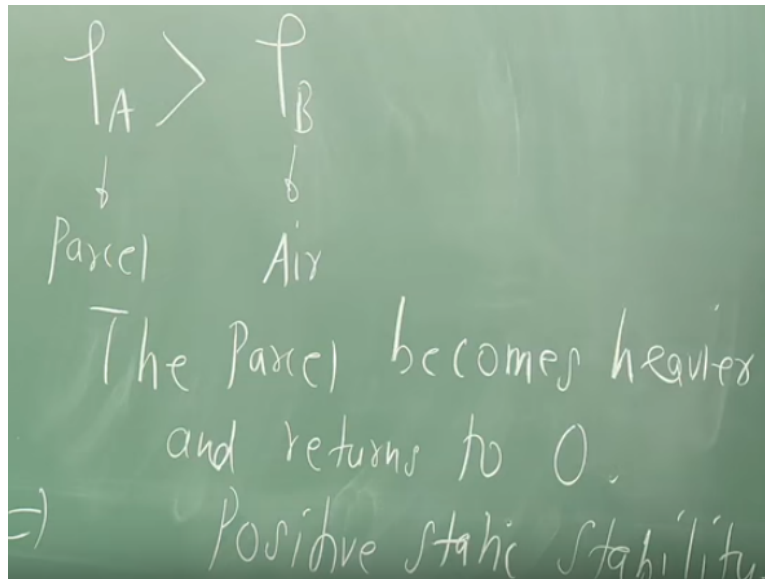 ρ_A > ρ_B
Parcel Air
The Parcel becomes heavier
and returns to O.
=) Positive static stability